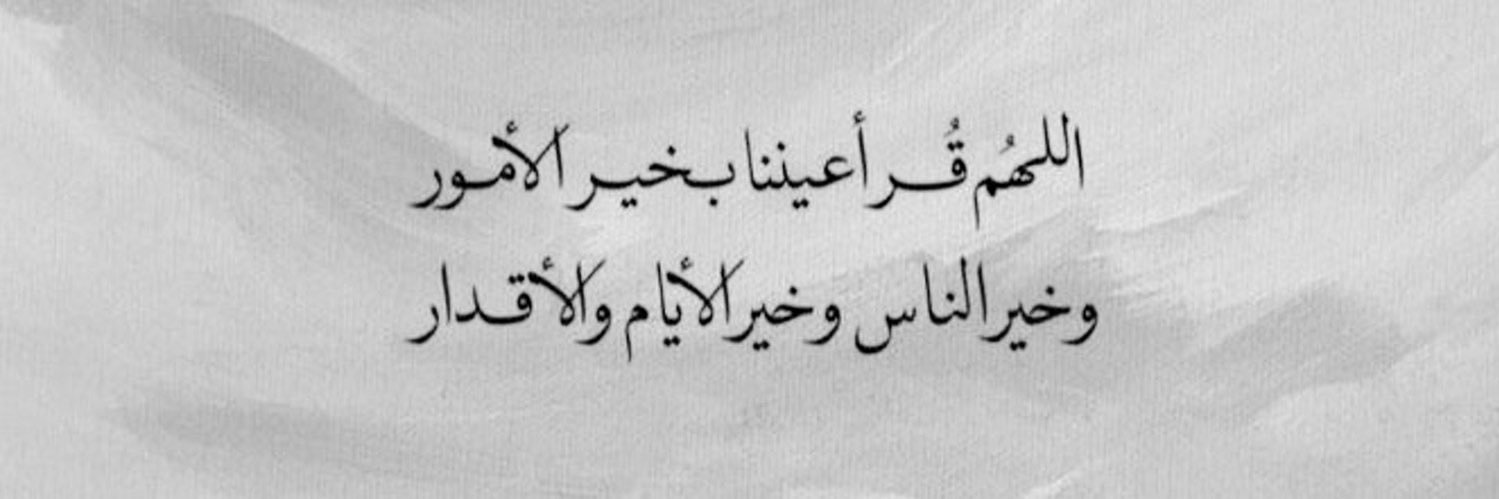 اللهُم قُر أعيننا بخير الأمور
وخير الناس وخير الأيام والأقدار